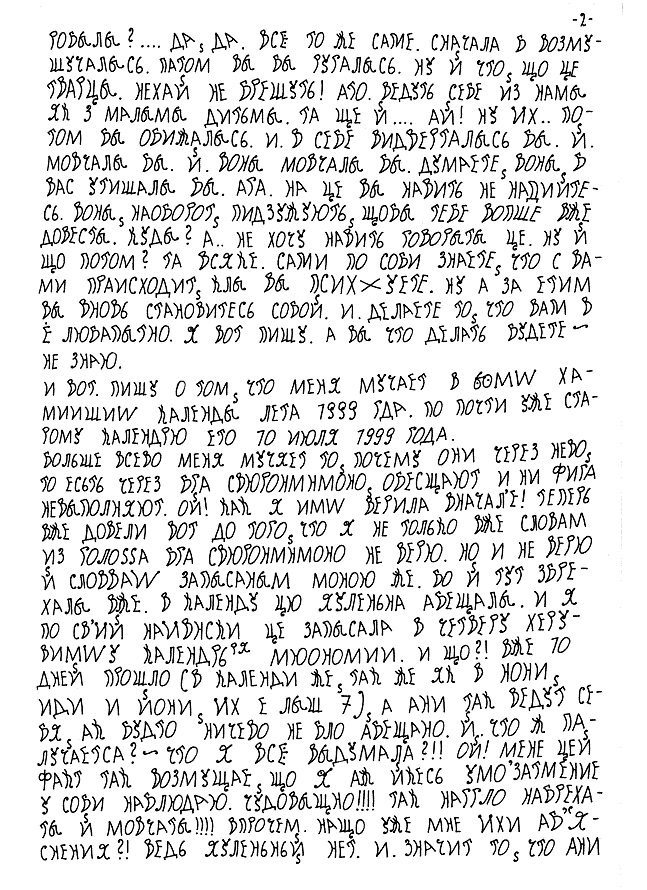 -2-
ГОВЫЛЫ?.... ДА, ДА. ВСЕ ТО ЖЕ САМЕ. СНАЧАЛА В ВОЗМУ-
ШЧАЛЫСЬ. ПАТОМ ВЫ БЫ РУГАЛЫСЬ. НУ Й ЧТО, ЩО ЦЕ
ТВАРЦЫ. НЕХАЙ НЕ БРЕШУТЬ! АГО. ВЕДУТЬ СЕБЕ ИЗ НАМЫ
ЯК З МАЛЫМЫ ДИТЬМЫ. ТА ЩЕ Й.... АЙ! НУ ИХ.. ПО-
ТОМ ВЫ ОБИЖАЛЫСЬ. И. В СЕБЕ ВИДВЕРТАЛЫСЬ БЫ. Й.
МОВЧАЛЫ БЫ. Й. ВОНЫ МОВЧАЛЫ БЫ. ДУМАЕТЕ, ВОНЫ, В
ВАС УТИШАЛЫ БЫ. АГА. НА ЦЕ ВЫ НАВИТЬ НЕ НАДИЙТЕ-
СЬ. ВОНЫ, НАОБОРОТ, ПИДЗУЖУЮТЬ, ЩОБЫ ТЕБЕ ВОПШЕ ВЖЕ
ДОВЕСТЫ. КУДЫ? А.. НЕ ХОЧУ НАВИТЬ ГОВОРЫТЫ ЦЕ. НУ Й
ЩО ПОТОМ? ТА ВСЯКЕ. САМИ ПО СОБИ ЗНАЕТЕ, ЧТО С ВА-
МИ ПРАИСХОДИТ, КЛЫ ВЫ ПСИХУЕТЕ. НУ А ЗА ЕТИМ
ВЫ ВНОВЬ СТАНОВИТЕСЬ СОБОЙ. И. ДЕЛАЕТЕ ТО, ЧТО ВАМ В
Е ЛЮБАПЫТНО. Я ВОТ ПИШУ. А ВЫ ЧТО ДЕЛАТЬ БУДЕТЕ ~
НЕ ЗНАЮ.
И ВОТ. ПИШУ О ТОМ, ЧТО МЕНЯ МУЧАЕТ В 60МW ХА-
МИИШИW КАЛЕНДЫ ЛЕТА 1999 ГДА. ПО ПОЧТИ УЖЕ СТА-
РОМУ КАЛЕНДРЮ ЕТО 10 ИЮЛЯ 1999 ГОДА.
БОЛЬШЕ ВСЕВО МЕНЯ МУЧЯЕТ ТО, ПОЧЕМУ ОНИ ЧЕРЕЗ НЕВО,
ТО ЕСТЬ ЧЕРЕЗ БГА СВЮРОНМИМОНО, ОБЕСЩАЮТ И НИ ФИГА
НЕВЫПОЛНЯЮТ. ОЙ! КАК Я ИМW ВЕРИЛА ВНАЧАЛ'Е! ТЕПЕРЬ
ВЖЕ ДОВЕЛИ ВОТ ДО ТОГО, ЧТО Я НЕ ТОЛЬКО ВЖЕ СЛОВАМ
ИЗ ГОЛОSSА БГА СВЮРОНМИМОНО НЕ ВЕРЮ. НО И НЕ ВЕРЮ
Й СЛОВВАW ЗАПЫСАНЫМ МОНОЮ ЖЕ. БО Й ТУТ ЗБРЕ-
ХАЛЫ ВЖЕ. В КАЛЕНДУ ЦЮ ЯУЛЕНЬНА АБЕЩАЛЫ. И Я
ПО СВ'ИЙ НАИВНСКИ ЦЕ ЗАПЫСАЛА В ЧЕТВЕРУ ХЕРУ-
ВИМW'У КАЛЕНДРЬ'ЯХ МЮОНОМИИ. И ЩО?! ВЖЕ 10
ДНЕЙ ПРОШЛО (В КАЛЕНДИ ЖЕ, ТАК ЖЕ ЯК В НОНИ,
ИДИ И ЙОНИ, ИХ Е ЛЫШ 7), А АНИ ТАК ВЕДУТ СЕ-
БЯ, АК БУДТО НИЧЕВО НЕ БЛО АБЕЩАНО. Й. ЧТО Ж ПА-
ЛУЧАЕТСА? ~ ЧТО Я ВСЕ ВЫДУМАЛА?!! ОЙ! МЕНЕ ЦЕЙ
ФАКТ ТАК ВОЗМУЩАЕ, ЩО Я АЖ ЙКЕСЬ УМО'ЗАТМЕНИЕ
У СОБИ НАБЛЮДАЮ. ЧУДОВЫЩНО!!!! ТАК НАГГЛО НАБРЕХА-
ТЫ Й МОВЧАТЫ!!!! ВПРОЧЕМ. НАЩО УЖЕ МНЕ ИХИ АБ"Я-
СНЕНИЯ?! ВЕДЬ ЯУЛЕНЬНЫЙ НЕТ. И. ЗНАЧИТ ТО, ЧТО АНИ